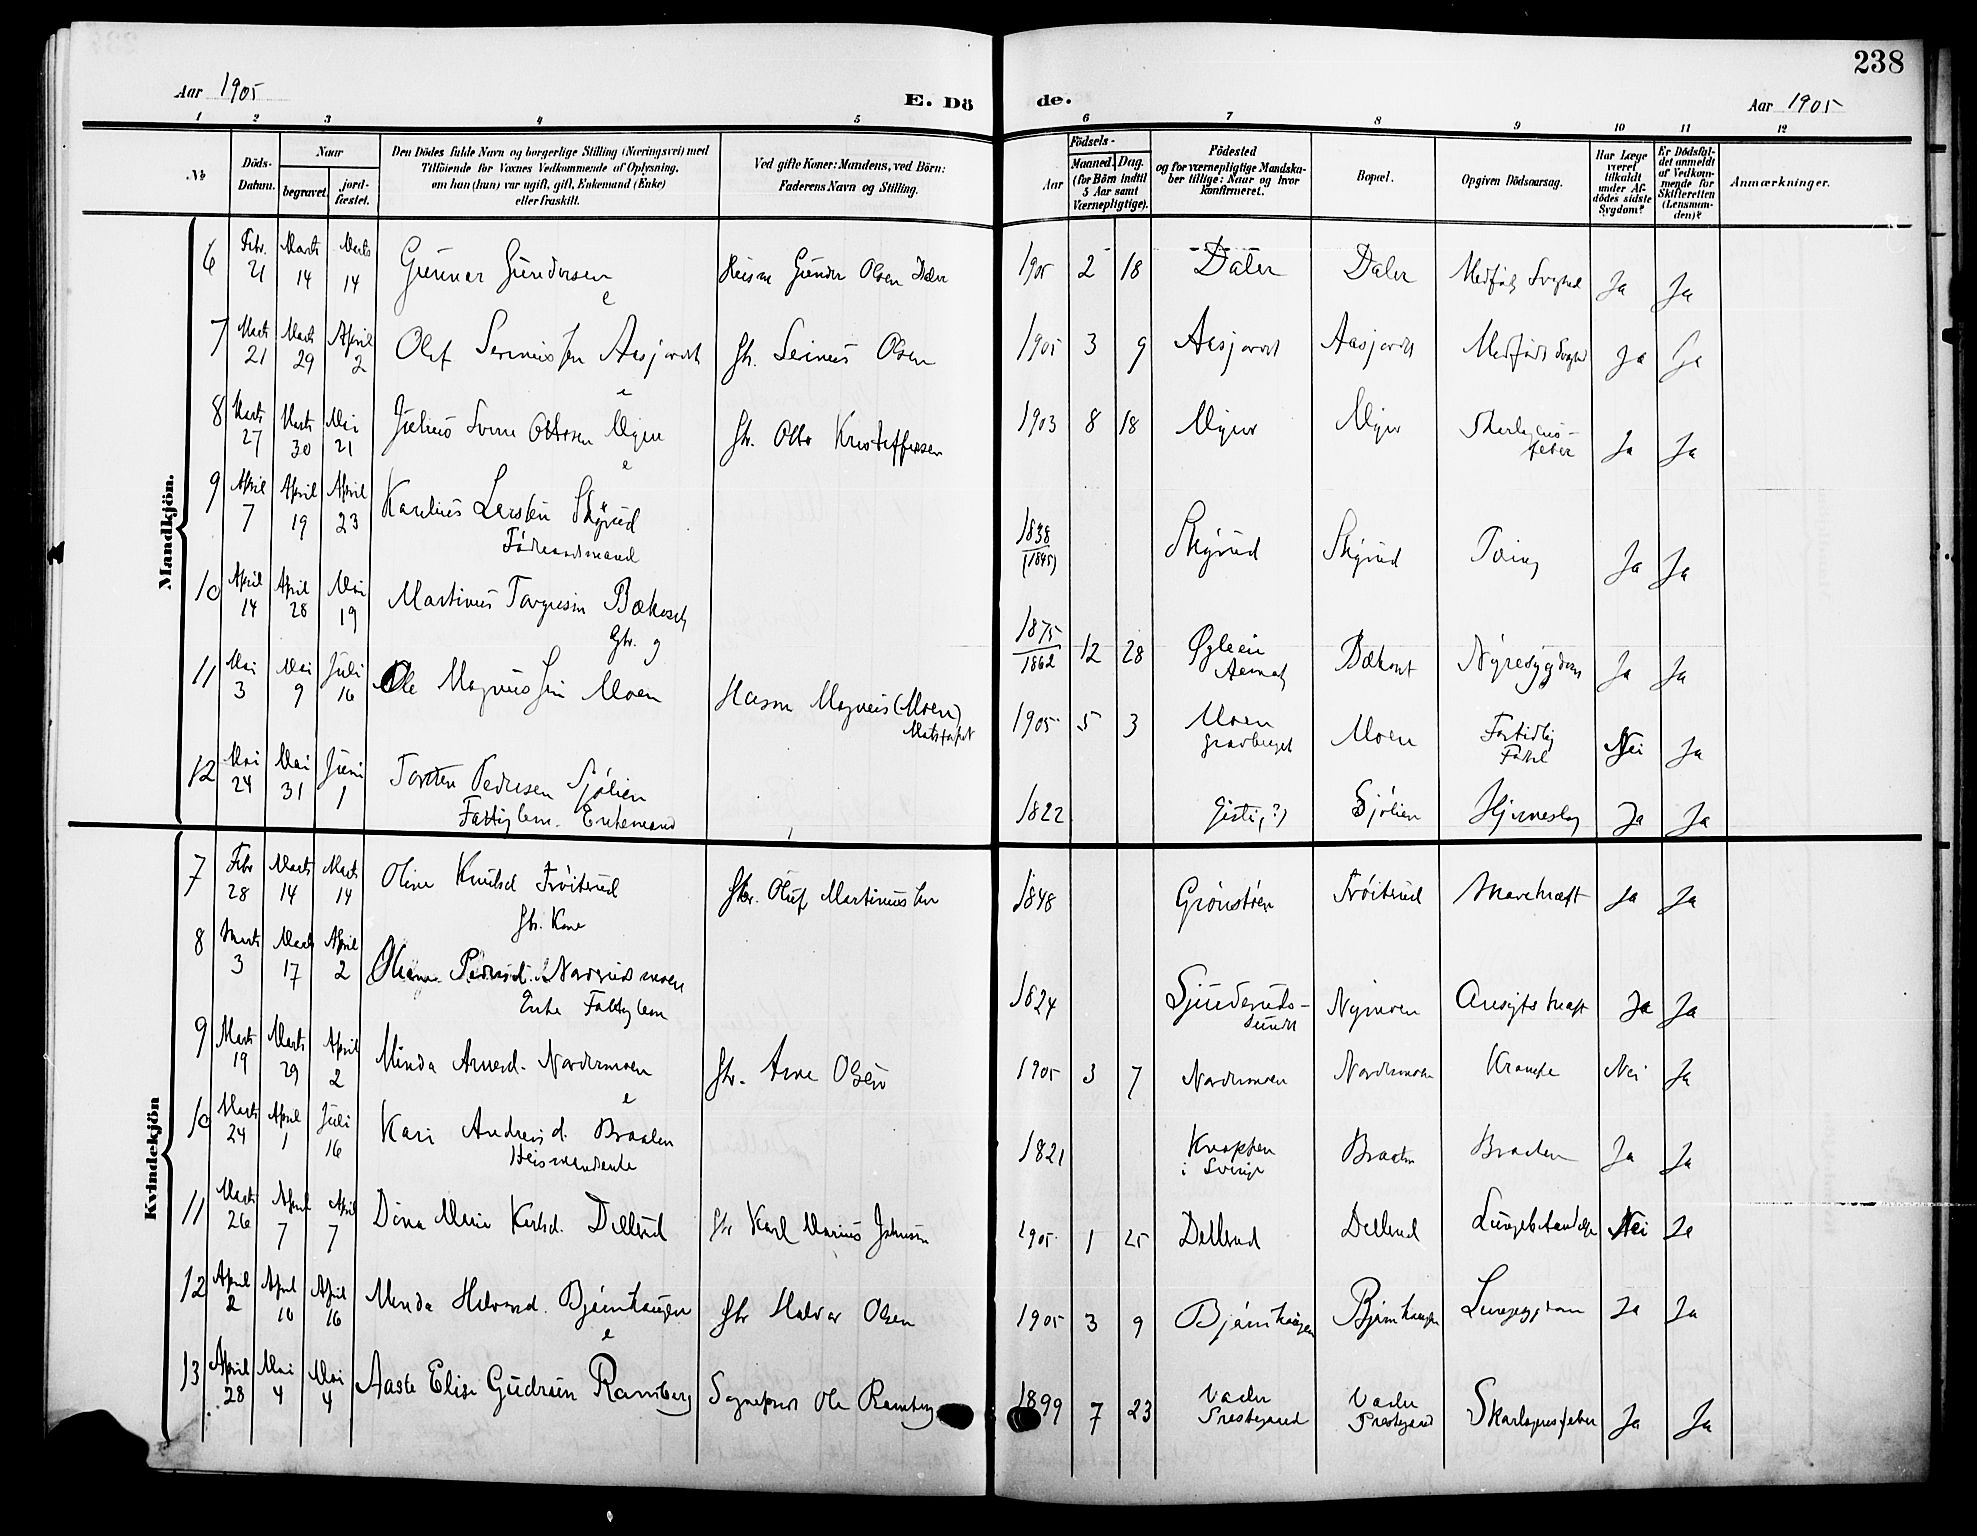 238
Aar 1905
E. Dö
de.
Aar 1905
1 2 3 4 5 6 7 8 9 10 11 12
No.
Döds-
Datum.
Naar
begravet.
jord-
fæstet.
Den Dödes fulde Navn og borgerlige Stilling (Næringsvei) med
Tilföiende for Voxnes Vedkommende af Oplysning,
om han (hun) var ugift, gift, Enkemand (Enke)
eller fraskilt.
Ved gifte Koner: Mandens, ved Börn:
Faderens Navn og Stilling.
Aar
Födsels-
Maaned. Dag.
(for Börn indtil
5 Aar samt
Værnepligtige).
Födested
og for værnepligtige Mandska-
ber tillige: Naar og hvor
konfirmeret.
Bopæl.
Opgiven Dödsaarsag.
Har Læge
været
tilkaldt
under Af-
dödes sidste
Sygdom?
Er Dödsfal-
det anmeldt
af Vedkom-
mende for
Skifteretten
(Lensman-
den)?
Anmærkninger.
Mandkjön.
6 Febr. 21 Marts 14 Marts 14 Gunnar Gundersen Husm Gunder Olsen Daler 1905 2 18 Daler Daler Medfödt Svaghed Ja Ja
e
7 Marts 21 Marts 29 April 2 Olaf Aasjordet Gbr. Olsen 1905 3 9 Aasjordet Aasjordet Medfödt Svaghed Ja Ja
e
8 Marts 27 Marts 30 Mai 21 Julius Ottosen Myrer Gbr. Otto Kristoffersen 1903 8 18 Myrer Myrer Skarlagens-
feber Ja Ja
e
9 April 7 April 19 April 23 Karelius Larsen Skyrud
Föderaadsmand
1838
(1895) Skyrud Skyrud Tæring Ja Ja
10 April 14 April 28 Mai 19 Martinus Bækaset
Gbr. g
1875
1862 12 28 Bækaset Nyresygdom Ja Ja
11 Mai 3 Mai 9 Juli 16 Ole Magnussen Moen Husm Magnus (Moen) 1905 5 3 Moen
Gravberget Moen Fortidlig
Födsel Nei Ja
12 Mai 24 Mai 31 Juni 1 Torsten Pedersen Sjölien
Fattiglem. Enkemand
1822 Sjölien Hjerneslag Ja Ja
Kvindekjön
7 Febr 28 Marts 14 Marts 14 Oline Knutsd Tröiterud
Gbr. Kone
Gbr. Oluf Martinussen 1848 Grönstöen Tröiterud Mavekræft Ja Ja
8 Marts 3 Marts 17 April 2 Pedersd.
Enke Fattiglem
1824 Sjunderuds-
sundet Nymoen Ansigtskræft Ja Ja
9 Marts 19 Marts 29 April 2 Minda Arnesd. Nordermoen Gbr. Arne Olsen 1905 3 7 Nordermoen Nordermoen Krampe Nei Ja
e
10 Marts 24 April 1 Juli 16 Kari Andreasd. Braaten
Husmandsenke
1821 Knappen
i Sverige Braaten Ja Ja
11 Marts 26 April 7 April 7 Dina Marie Karlsd. Dellerud Gbr Karl Marius Johnsen 1905 1 25 Dellerud Dellerud Lungebetændelse Nei Ja
12 April 2 April 16 April 16 Minda Halvorsd. Björnhaugen Gbr Halvor Olsen 1905 3 9 Björnhaugen Björnhaugen Lungesygdom Ja Ja
e
13 April 28 Mai 4 Mai 4 Aasta Elise Gudrun Ramberg Sogneprest Ole Ramberg 1899 7 23 Vaaler
Prestegaard Vaaler
Prestegaard Skarlagensfeber Ja Ja